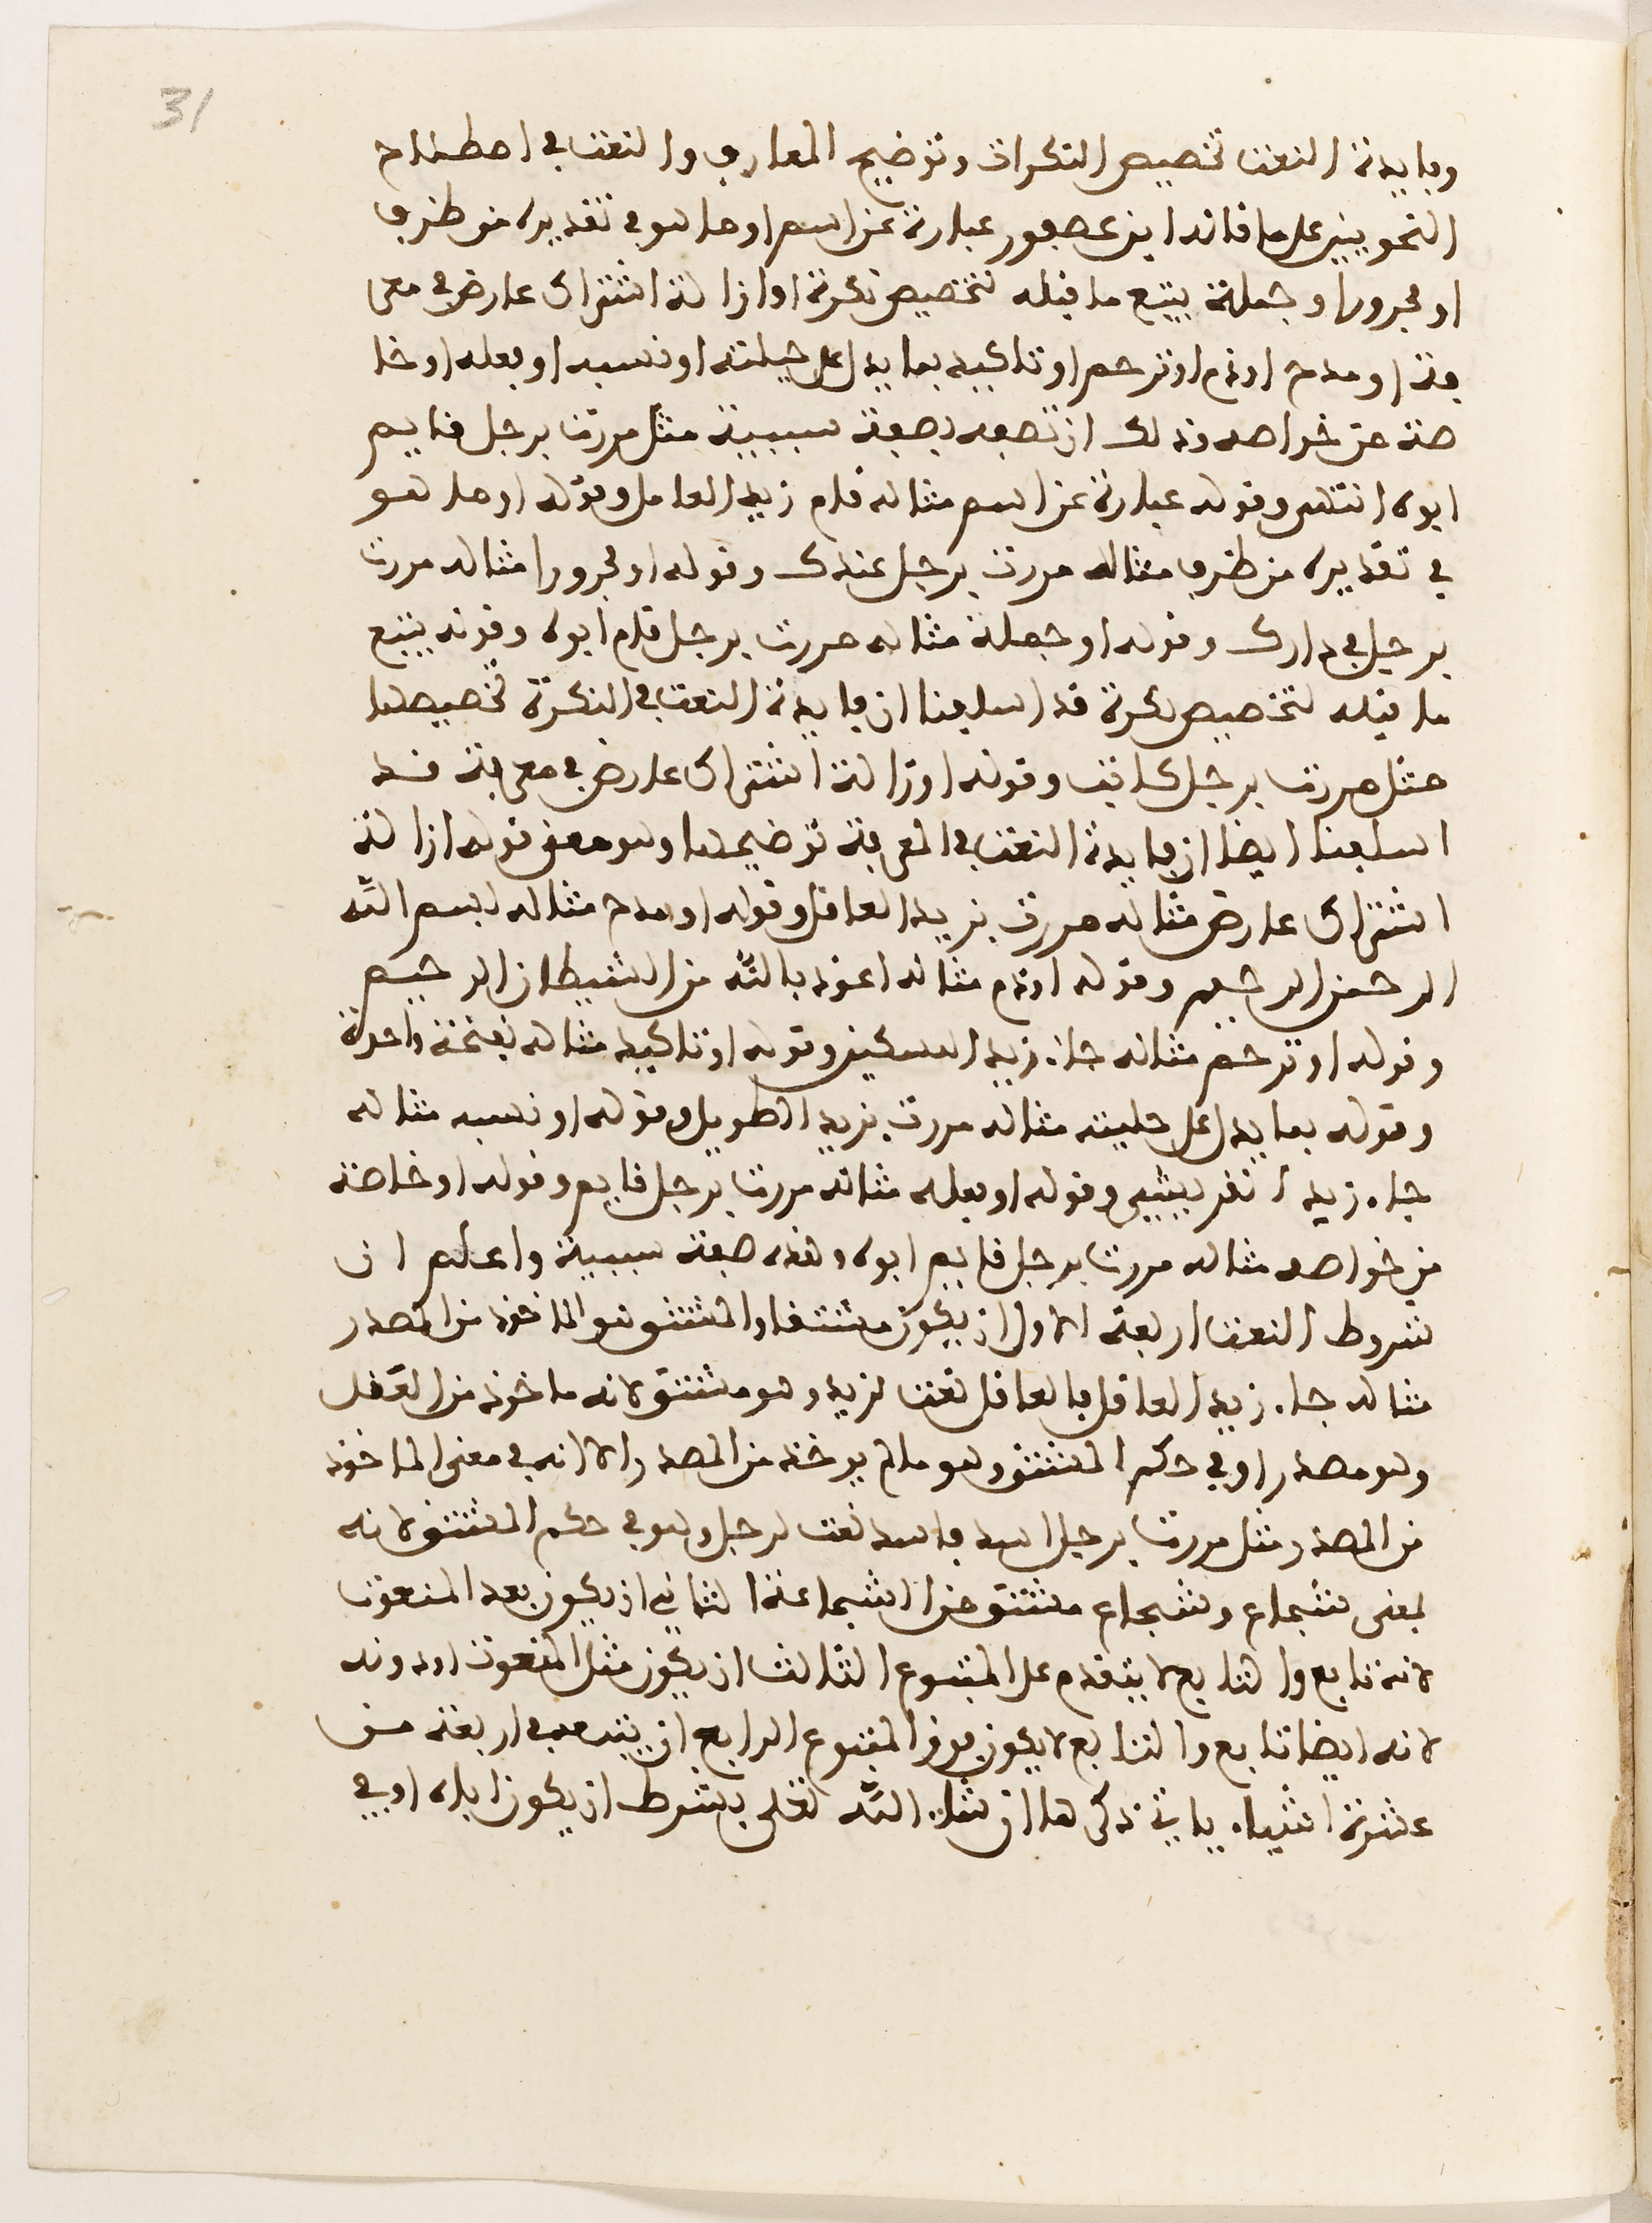 31
وفايدة النعت تخصيص النكرات وتوضيح المعارف والنعت في اصطلاح
النحويين على ما قاله ابن عصفور عبارة عن اسم او ما هو في تقديره من ظرف
او مجرور او جملة يتبع ما قبله لتخصيص نكرة او ازالة اشتراك عارض في معر
فة او مدح او ذم او ترحم او تاكيد بما يدل على حيلته او نسبه او فعله او خا
صة من خواصه وذلك ان تصفه بصفة سببية مثل مررت برجل قايم
ابوه انتهى وقوله عبارة عن اسم مثاله قام زيد العامل وقوله او ما هو
في تقديره من ظرف مثاله مررت برجل عندك وقوله او مجرورا مثاله مررت
برجل في دارك وقوله او جملة مثاله مررت برجل قام ابوه وقوله يتبع
ما قبله لتخصيص نكرة قد اسلفنا ان فايدة النعت في النكرة تخصيصها
مثل مررت برجل كاتب وقوله او زالة اشتراك عارض في معرفة قد
اسلفنا ايضا ان فايدة النعت في المعرفة توضيحها وهو معنى قوله ازالة
اشتراك عارض مثاله مررت بزيد العاقل وقوله او مدح مثاله بسم الله
الرحمن الرحيم وقوله او ذم مثاله اعوذ بالله من الشيطان الرجيم
وقوله او ترحم مثاله جاء زيد المسكين وقوله او تاكيد مثاله نفخة واحدة
وقوله بما يدل على حليته مثاله مررت بزيد الطويل وقوله او نسبه مثاله
جاء زيد القريشي وقوله او فعله مثاله مررت برجل قايم وقوله او خاصة
من خواصه مثاله مررت برجل قايم ابوه وهذه صفة سببية واعلم ان
شروط النعت اربعة الاول ان يكون مشتقا والمشتق هو الماخوذ من المصدر
مثاله جاء زيد العاقل فالعاقل نعت لزيد وهو مشتق لانه ماخوذ من العقل
وهو مصدر او في حكم المشتق وهو ما لم يوخذ من المصدر الا انه في معنى الماخوذ
من المصدر مثل مررت برجل اسد فاسد نعت لرجل وهو في حكم المشتق لانه
بمعنى شجاع وشجاع مشتق من الشجاعة الثاني ان يكون بعد المنعوت
لانه تابع والتابع لا يتقدم على المتبوع الثالث ان يكون مثل المنعوت او دونه
لانه ايضا تابع والتابع لا يكون فوق المتبوع الرابع ان يتبعه في اربعة من
عشرة اشياء ياتي ذكرها ان شاء الله تعلى بشرط ان يكون اياه او في